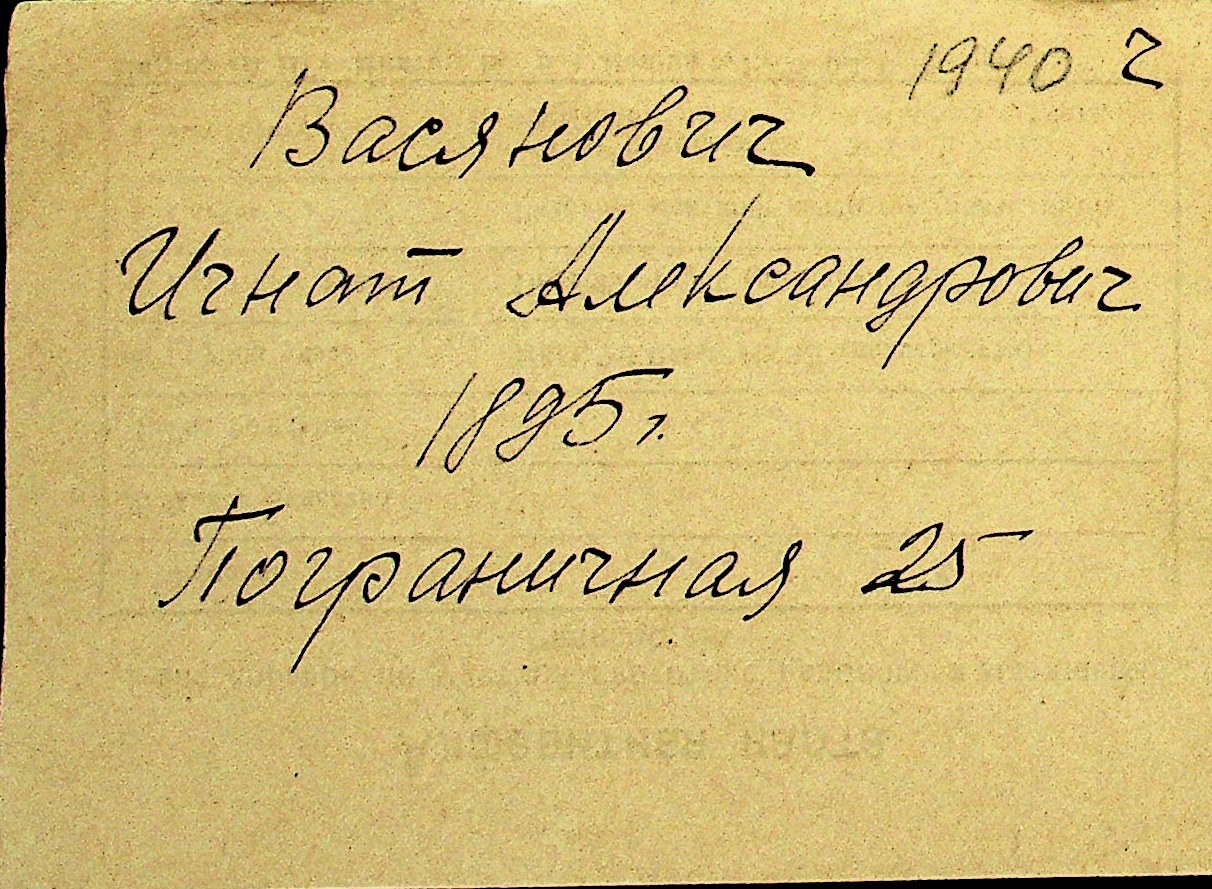 1940 г
Васянович
Игнат Александрович
1895 г.
Пограничная 25